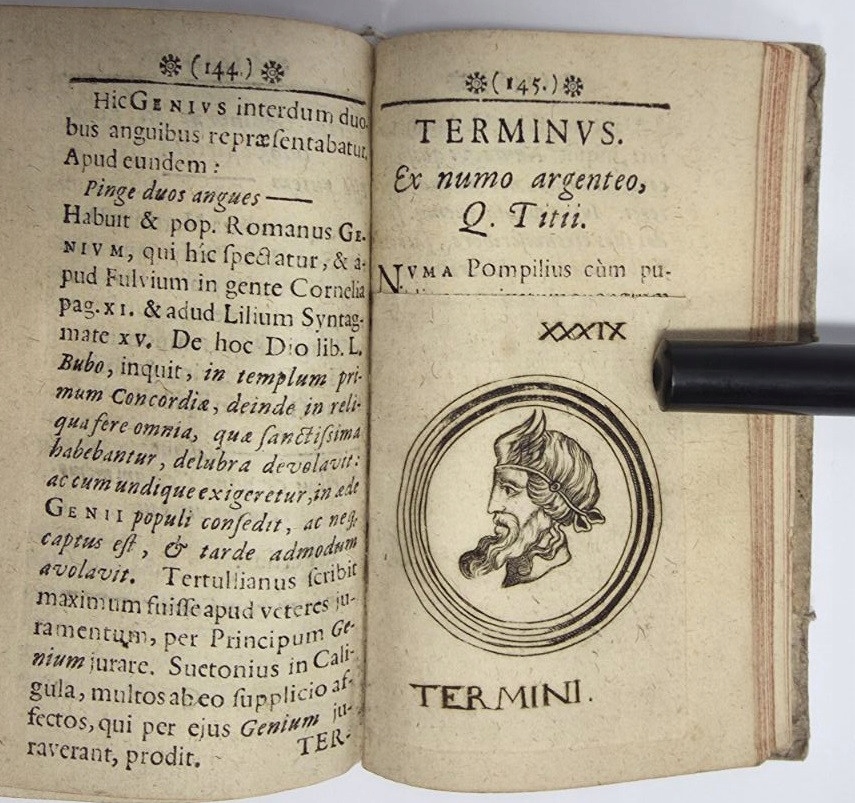 (144.)
Hic GENIVS interdum duo-
bus anguibus repræſentabatur,
Apud eundem:
Pinge duos angues ——
Habuit & pop. Romanus GE-
NIVM, qui hîc ſpectatur, & a-
pud Fulvium in gente Cornelia
pag. XI. & adud Lilium Syntag-
mate XV. De hoc Dio lib. L.
Bubo, inquit, in templum pri-
mum Concordiæ, deinde in reli-
qua fere omnia, quæ ſanctiſsima
habebantur, delubra devolavit:
ac cum undique exigeretur, in æde
GENII populi conſedit, ac neq;
captus eſt, & tarde admodum
avolavit. Tertullianus ſcribit
maximum fuiſſe apud veteres ju-
ramentum, per Principum Ge-
nium jurare. Suetonius in Cali-
gula, multos ab eo ſupplicio af-
fectos, qui per ejus Genium ju-
raverant, prodit.
TER-
(145.)
TERMINVS.
Ex numo argenteo,
Q. Titii.
NVMA Pompilius cùm pu-
XXXIX
TERMINI.